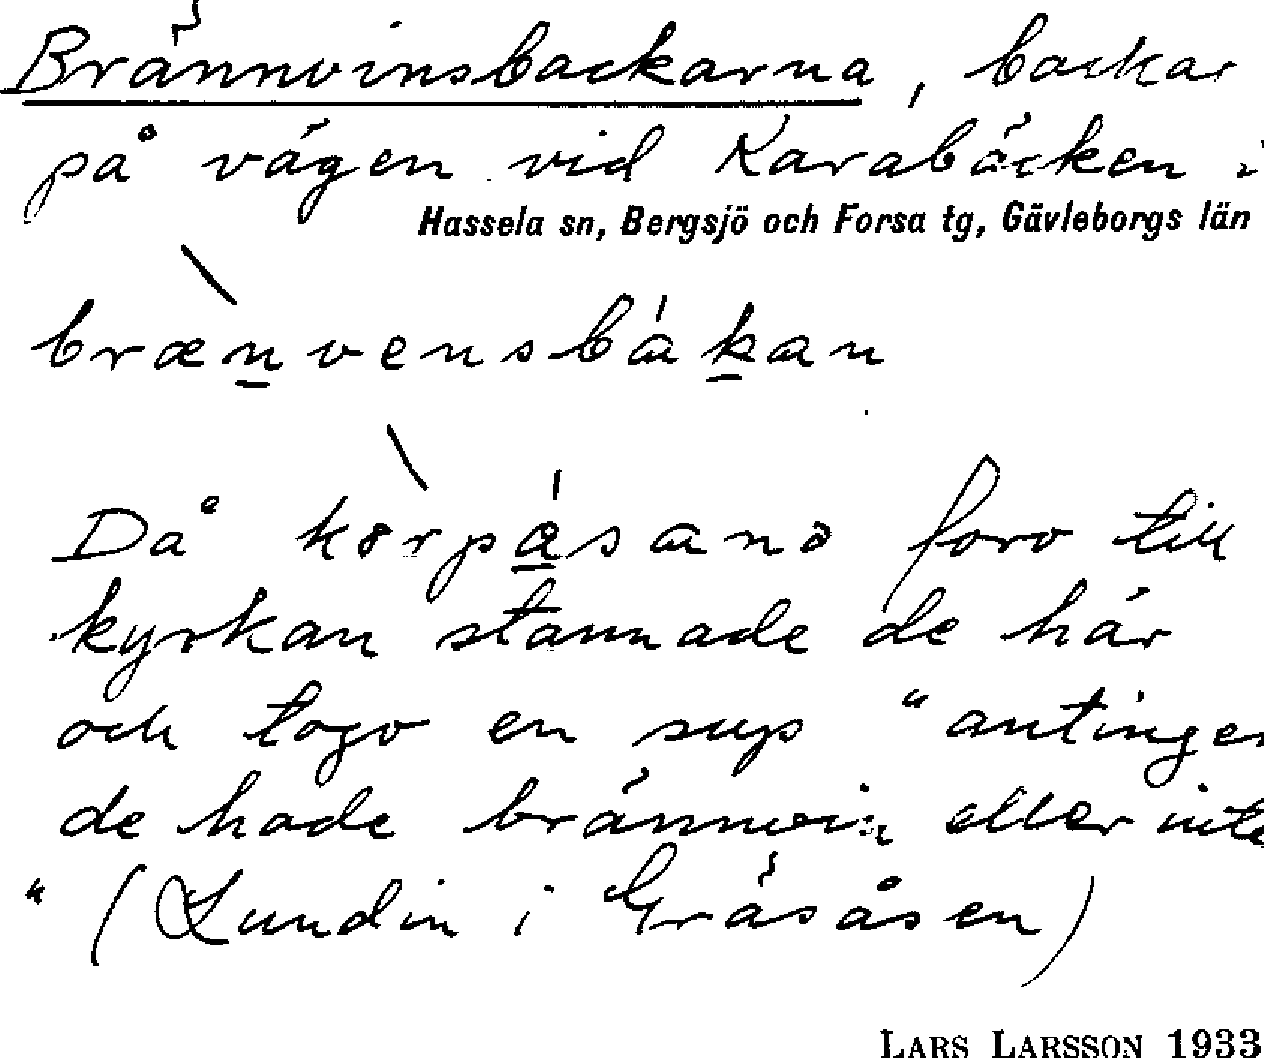 Brännvinsbackarna, backar
på vägen vid Karabäcken i
Hassela sn, Bergsjö och Forsa tg, Gävleborgs län
brænvensbákan
Då körpásanə foro till
kyrkan stannade de här
och togo en sup "antingen
de hade brännvin eller inte
" (Lundin i Gräsåsen)
LARS LARSSON 1933